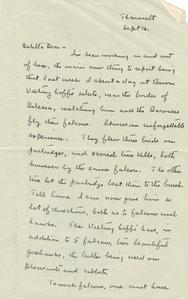 Tharandt
Sept 16.
Dear —
I've been working in and out
of here, the main new thing to report being
that last week I spent a day at Baron
Vieting hoff's estate, near the border of
Silesia, watching him and the Baroness
fly their falcons. It was an unforgettable
experience. They flew three birds on
partridges, and scored two kills, both
however by the same falcon. The other
two let the partridge beat them to the brush.
Tell him I can now give him a
lot of directions, both as to falcons and
hawks. The Vieting hoffs have, in
addition to 5 falcons two beautiful
goshawks, the latter being used on
pheasants and rabbits.
To work falcons, one must have